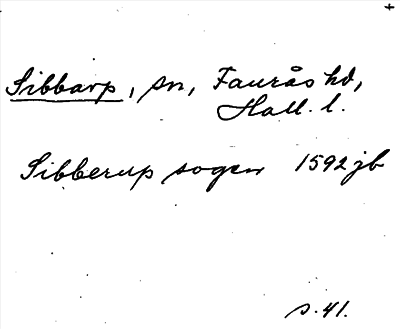 Sibbarp, sn, Faurås hd,
Hall. l.
Sibberup sogen 1592 jb
s. 41.